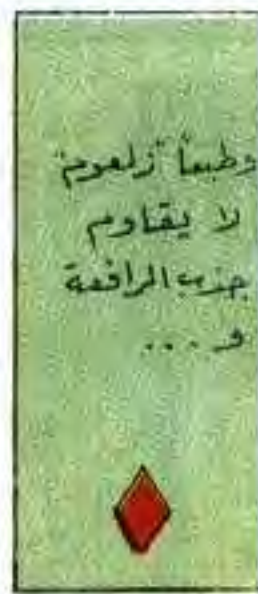 وطبعاً زلعوم
لا يقاوم
جذب الرافعة
و...